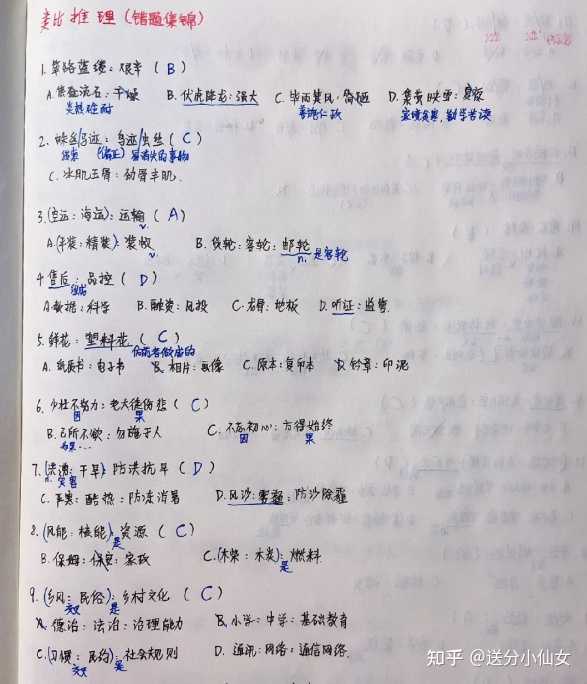 类比推理（错题集锦）
1.筚路蓝缕：艰辛（B）
A.焦金流石：干燥 B.伏虎降龙：强大 C.毕雨箕风：
炎热难耐 善施仁政
D.集萤映雪：
家境贫寒，勤学苦读
2.蛛丝马迹：鸟迹虫丝（C）
线索 （偏正）易消失的事物
C.冰肌玉骨：
3.（空运：海运）：运输（A）
v.
A.（平装：精装）：装帧 B.货轮：客轮：邮轮
v. n.是客轮
4.售后：品控（D）
A.数据：科学 B.融资：风投 C.右肩：地板 D.听证：监督
5.鲜花：塑料花（C）
仿前者做成的
A.纸质书：电子书 B.相片：画像 C.原本：复印本 D.印章：印泥
6.少壮不努力：老大徒伤悲（C）
因 果
B.己所不欲：勿施于人 C.不忘初心：方得始终
因 果
7.（洪涝：干旱）：防洪抗旱（D）
n.灾害
C.严寒：酷热：防冻消暑 D.风沙：雾霾：防沙除霾
8.（风能：核能）：资源（C）
是
B.保姆：保安：家政 C.（木柴：木炭）：燃料
是
9.（乡风：民俗）：乡村文化（C）
交叉 是
A.德治：法治：治理能力 B.小学：中学：基础教育
C.（习惯：民约）：社会规则 D.通讯：网络：通信网络
交叉 是
知乎 @送分小仙女